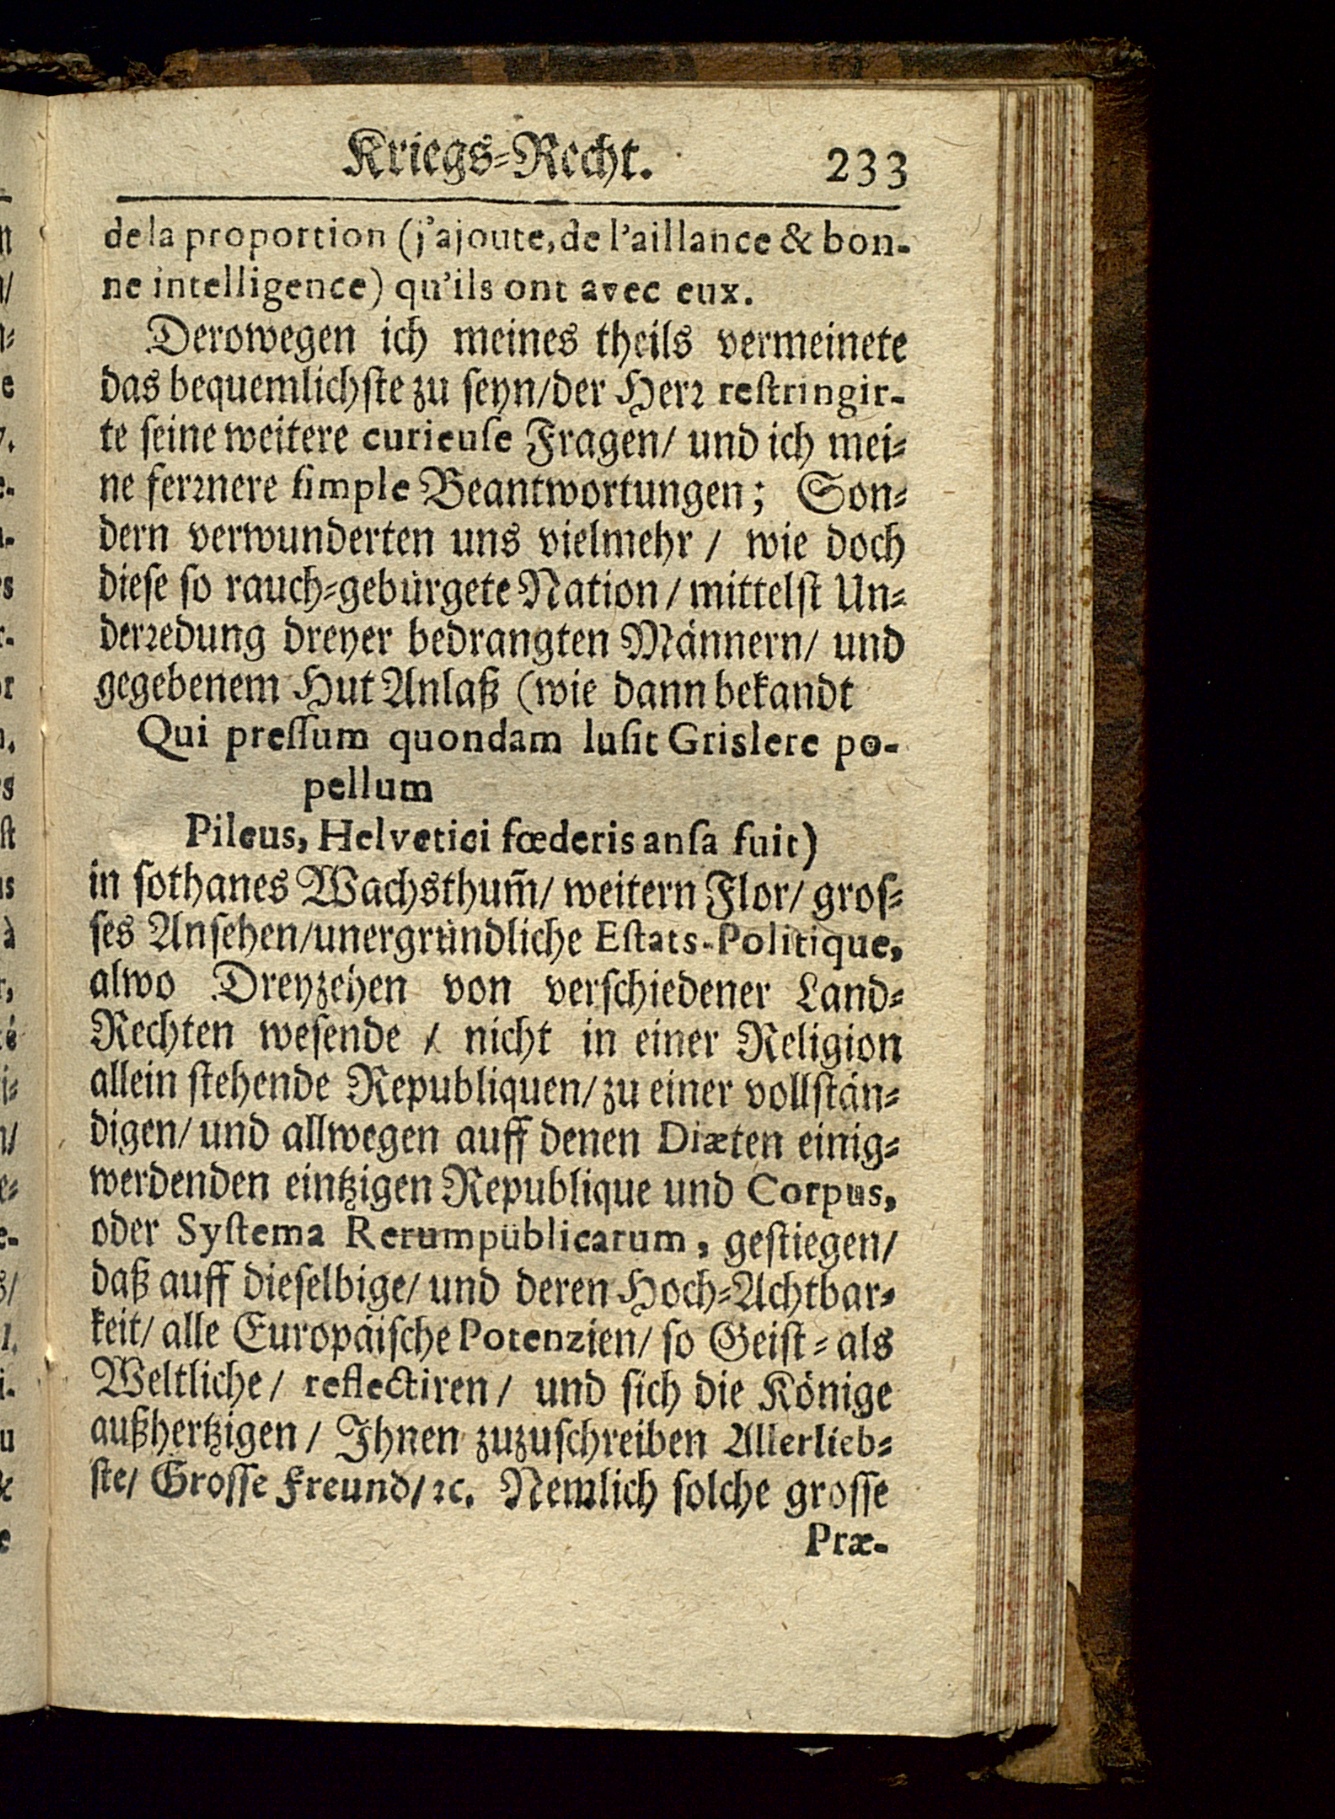 Kriegs-Recht. 233
de la proportion (j'ajoute, de l'aillance & bon-
ne intelligence) qu'ils ont avec eux.
Derowegen ich meines theils vermeinete
das bequemlichste zu seyn/der Herr restringir-
te seine weitere curieuse Fragen/ und ich mei-
ne ferrnere simple Beantwortungen; Son-
dern verwunderten uns vielmehr / wie doch
diese so rauch-gebürgete Nation / mittelst Un-
derredung dreyer bedrangten Männern/ und
gegebenem Hut Anlaß (wie dann bekandt
Qui pressum quondam lusit Grislere po-
pellum
Pileus, Helvetici fœderis ansa fuit)
in sothanes Wachsthum̃/ weitern Flor/ gros-
ses Ansehen/unergründliche Estats-Politique,
alwo Dreyzehen von verschiedener Land-
Rechten wesende / nicht in einer Religion
allein stehende Republiquen/ zu einer vollstän-
digen/ und allwegen auff denen Diæten einig-
werdenden eintzigen Republique und Corpus,
oder Systema Rerumpublicarum, gestiegen/
daß auff dieselbige/ und deren Hoch-Achtbar-
keit/ alle Europäische Potenzien/ so Geist- als
Weltliche/ reflectiren/ und sich die Könige
außhertzigen / Ihnen zuzuschreiben Allerlieb-
ste/ Grosse Freund/ ꝛc. Nemlich solche grosse
Præ-